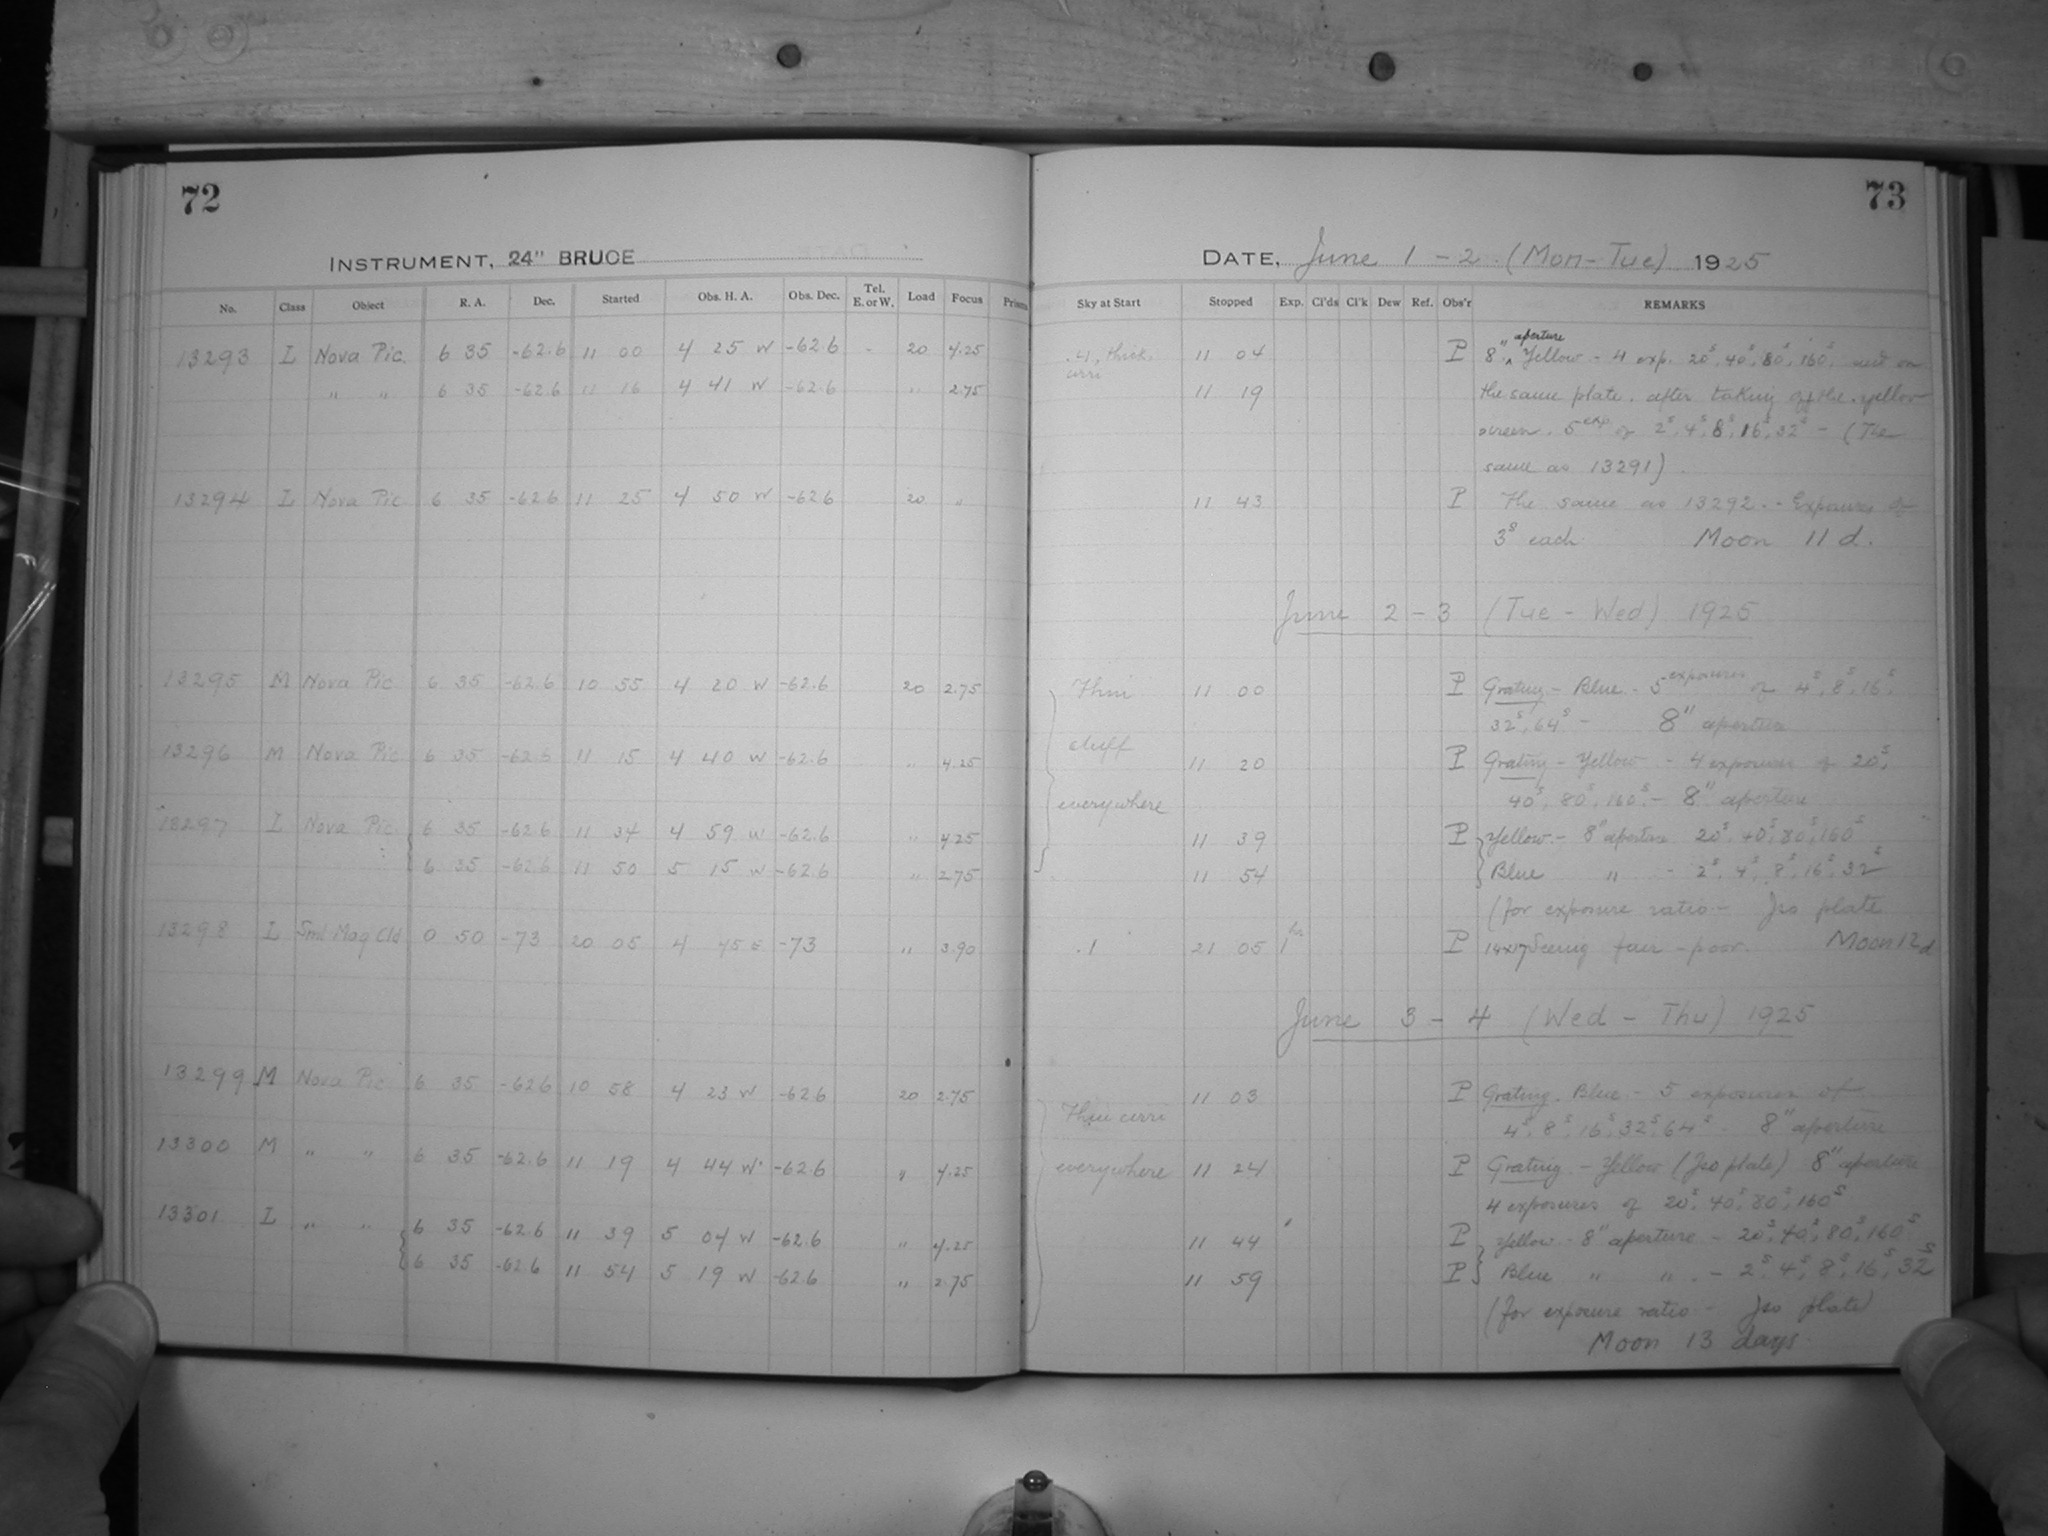 72
INSTRUMENT, 24" BRUCE
No. Class Object R. A. Dec. Started Obs. H. A. Obs. Dec. Tel. E. or W. Load Focus Prisms
13293 L Nova Pic. 6 35 -62.6 11 00 4 25 W -62.6 - 20 4.25
" " 6 35 -62.6 11 16 4 41 W -62.6 " 2.75
13294 L Nova Pic 6 35 -62.6 11 25 4 50 W -62.6 20 "
13295 M Nova Pic 6 35 -62.6 10 55 4 20 W -62.6 20 2.75
13296 M Nova Pic 6 35 -62.6 11 15 4 40 W -62.6 " 4.25
13297 I Nova Pic. 6 35 -62.6 11 34 4 59 W -62.6 " 4.25
6 35 -62.6 11 50 5 15 W -62.6 " 2.75
13298 L Sml Mag Cld 0 50 -73 20 05 4 45 E -73 " 3.90
13299 M Nova Pic 6 35 -62.6 10 58 4 23 W -62.6 20 2.75
13300 M " " 6 35 -62.6 11 19 4 44 W -62.6 " 4.25
13301 L " " 6 35 -62.6 11 39 5 04 W -62.6 " 4.25
6 35 -62.6 11 54 5 19 W -62.6 " 2.75
73
DATE, June 1 - 2 (Mon-Tue) 1925
Sky at Start Stopped Exp. Cl'ds Cl'k Dew Ref. Obs'r REMARKS
thick cirri 11 04 P 8" aperture Yellow - 4 exp. 20s, 40s, 80s, 160s, and on
11 19 the same plate, after taking off the yellow
screen, 5 exp of 2s, 4s, 8s, 16s, 32s - (The
same as 13291).
11 43 P The same as 13292 - Exposures of
3s each Moon 11 d.
June 2 - 3 (Tue - Wed) 1925
Thin 11 00 P Grating - Blue - 5 exposures of 4s, 8s, 16s,
32s, 64s - 8" aperture
stuff 11 20 P Grating - Yellow - 4 exposures of 20s,
everywhere 40s, 80s, 160s - 8" aperture
11 39 P Yellow - 8" aperture 20s, 40s, 80s, 160s
11 54 Blue " - 2s, 4s, 8s, 16s, 32s
(for exposure ratio - Iso plate
.1 21 05 1h P 14x17 Seeing fair - poor. Moon 12d
June 3 - 4 (Wed - Thu) 1925
Thin cirri 11 03 P Grating. Blue - 5 exposures of
4s, 8s, 16s, 32s, 64s - 8" aperture
everywhere 11 24 P Grating - Yellow (Iso plate) 8" aperture
4 exposures of 20s, 40s, 80s, 160s
11 44 P Yellow - 8" aperture - 20s, 40s, 80s, 160s
11 59 P Blue " " - 2s, 4s, 8s, 16s, 32s
(for exposure ratio - Iso plate)
Moon 13 days